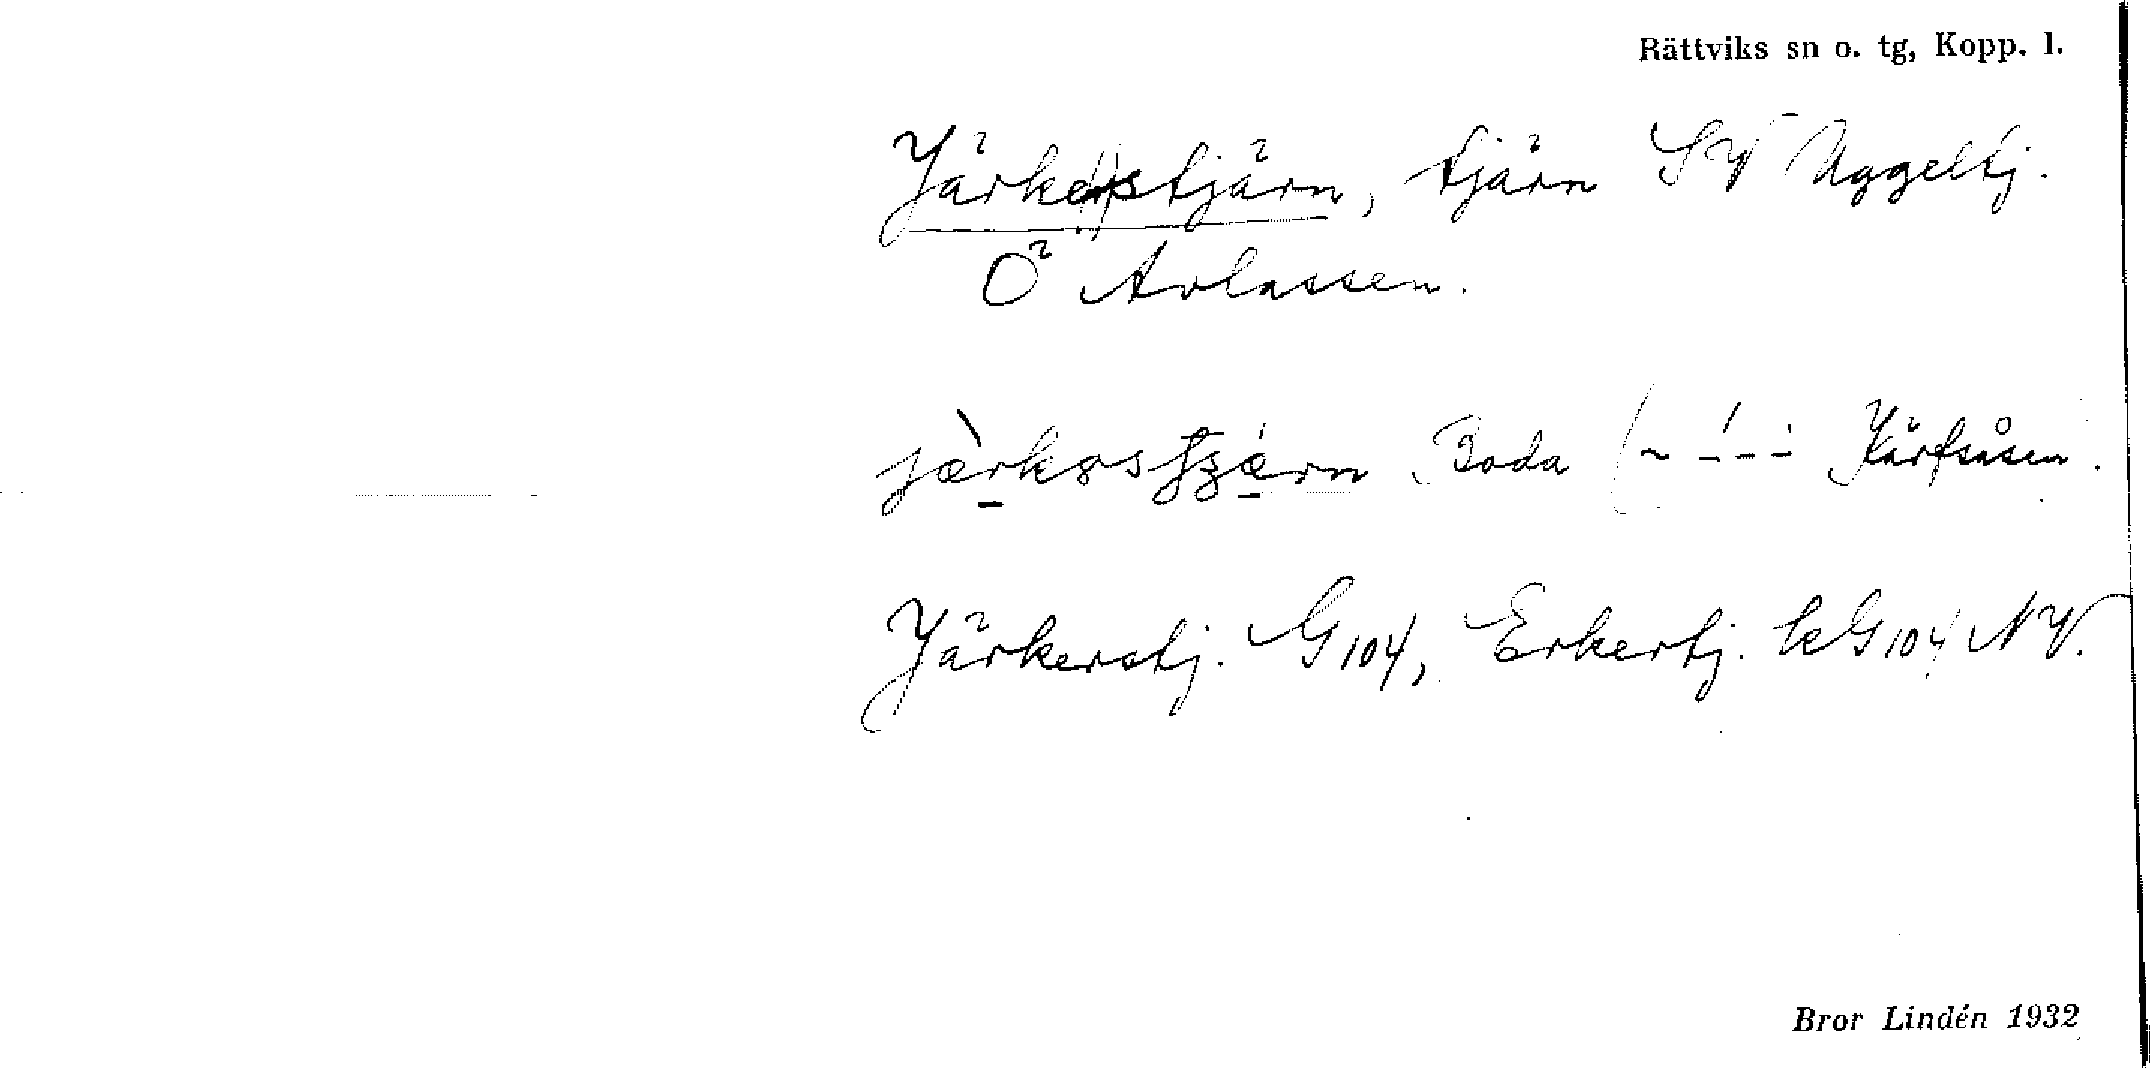 Rättviks sn o. tg, Kopp. l.
Järkerstjärn, tjärn SV Uggeltj.
Ö Avlassen.
Boda (~ - - - Kärfsåsen.
Järkerstj. G 104, Erkertj. kG 104 NV.
Bror Lindén 1932